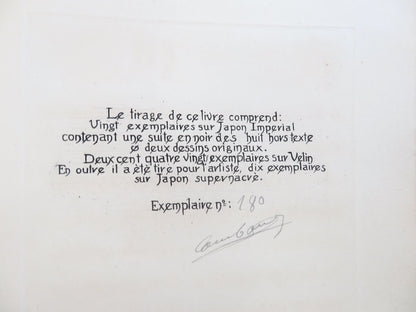 Le tirage de ce livre comprend:
Vingt exemplaires sur Japon Imperial
contenant une suite en noir des huit hors texte
& deux dessins originaux.
Deux cent quatre vingt exemplaires sur Vélin
En outre il a été tiré pour l'artiste, dix exemplaires
sur Japon supernacré.
Exemplaire nº: 180